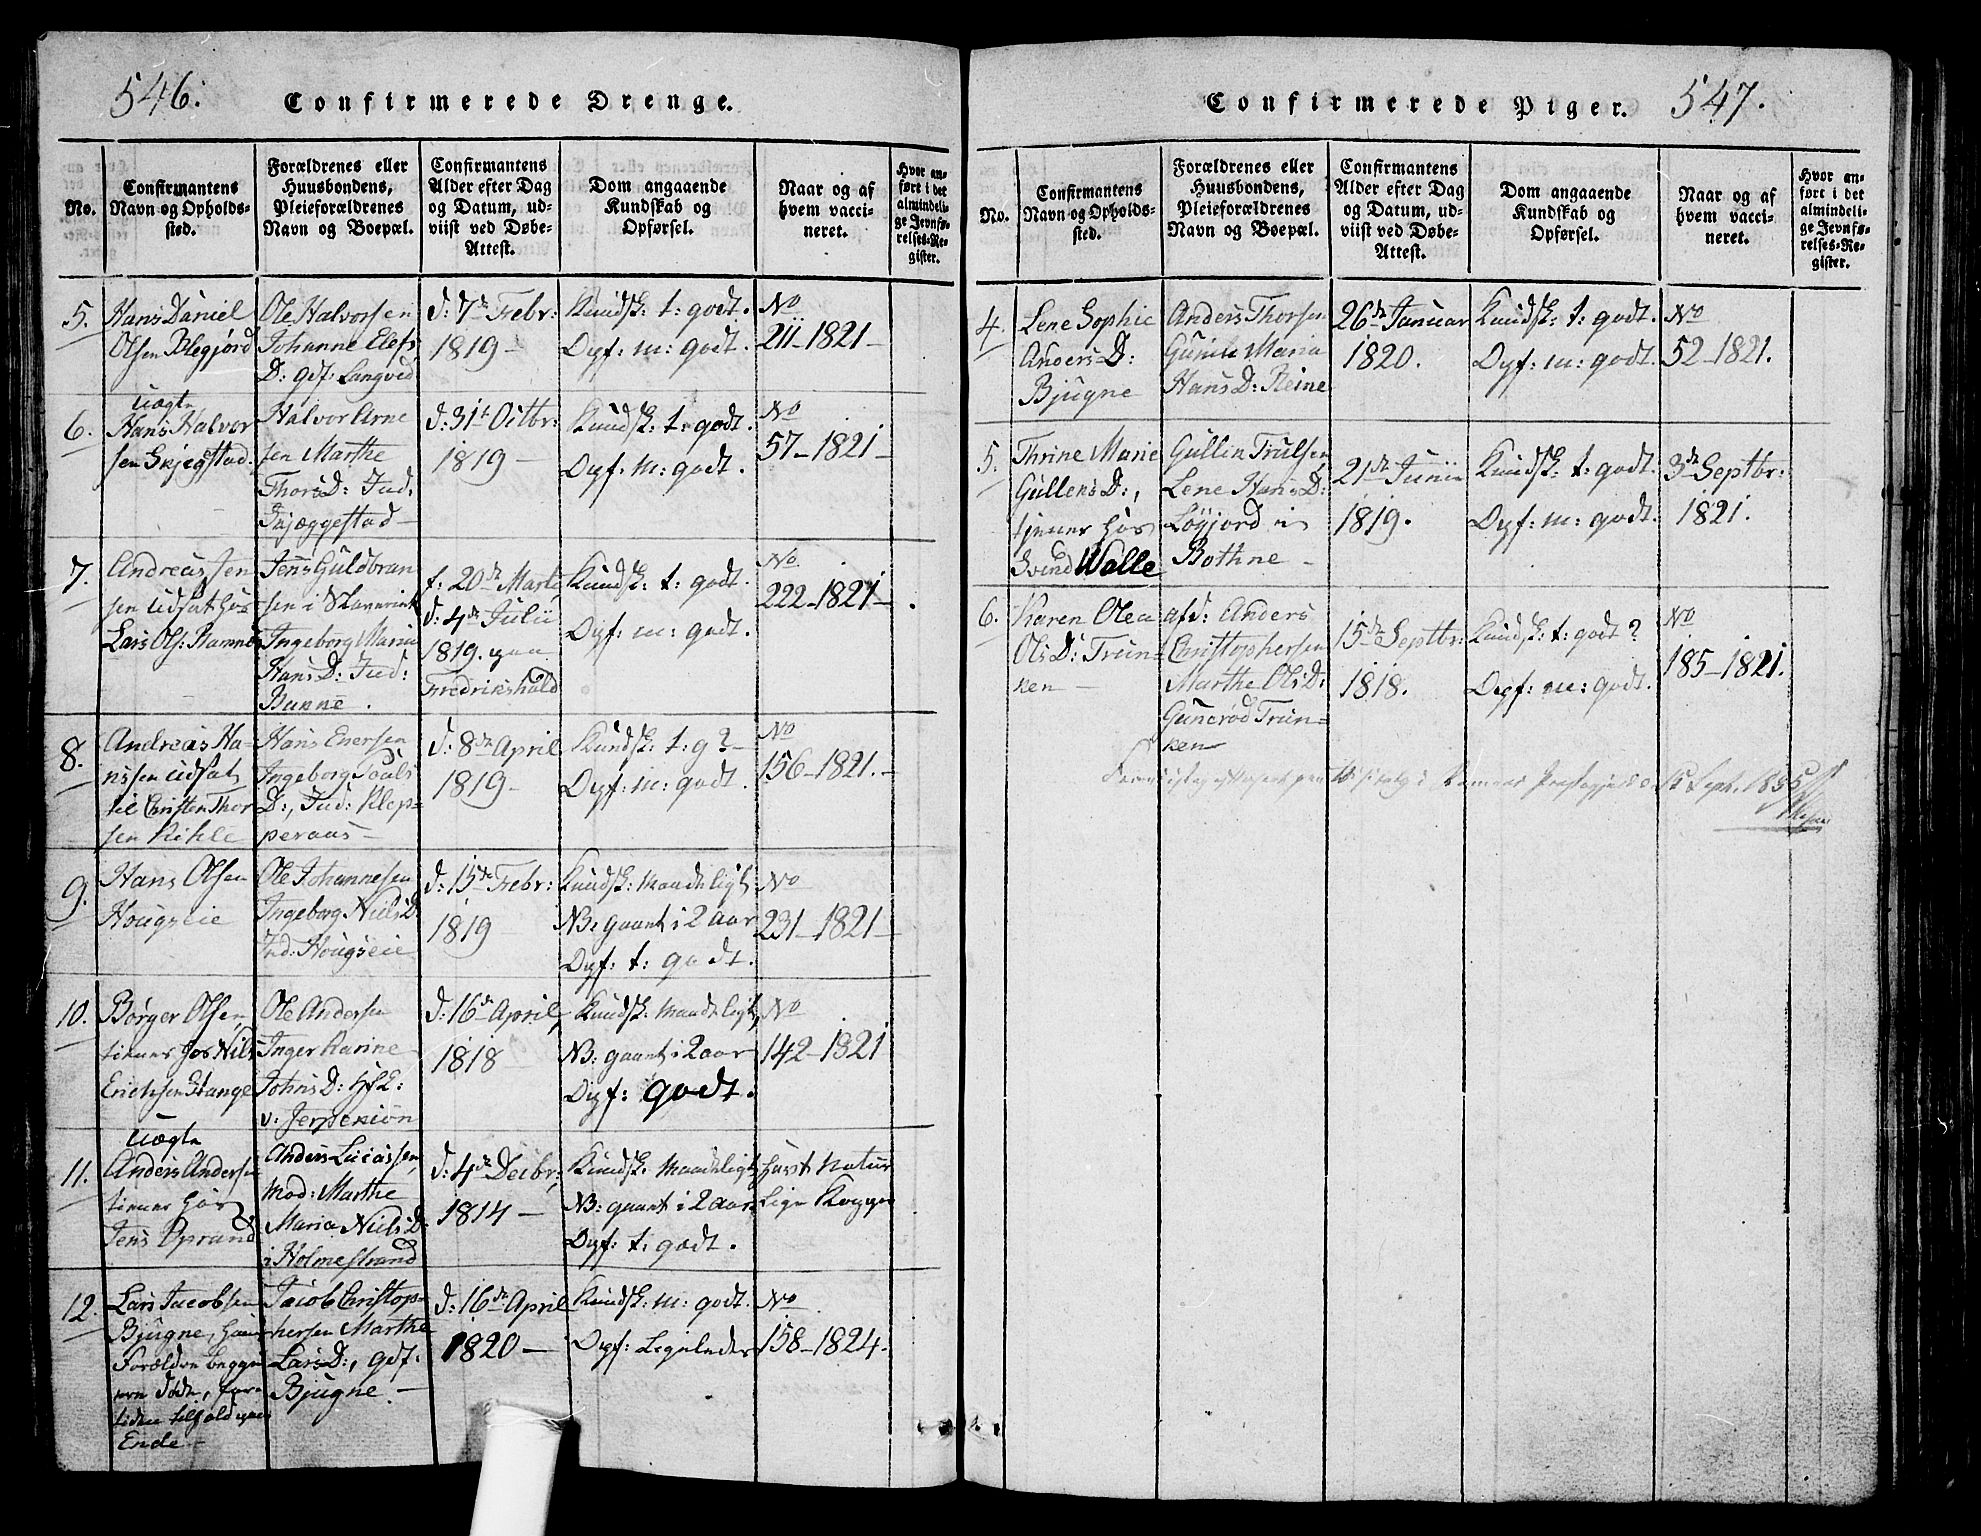 546.
Confirmerede Drenge.
No.
Confirmantens
Navn og Opholds-
sted.
Forældrenes eller
Huusbondens,
Pleieforældrenes
Navn og Boepæl.
Confirmantens
Alder efter Dag
og Datum, ud-
viist ved Døbe-
Attest.
Dom angaaende
Kundskab og
Opførsel.
Naar og af
hvem vacci-
neret.
Hvor an-
ført i det
almindeli-
ge Jevnfø-
relses-Re-
gister.
5.
Hans Daniel
Olsen Blegjord
Ole Halvorsen
Johanne Elefs
D: gdf: Langved
d: 7de Febr:
1819 -
Kundsk: t: godt.
Opf: m: godt.
No
211-1821-
6.
Uægte
Hans Halvor
sen Skjegstad.
Halvor Arne
sen Marthe
Thors D: Ind.
Skjæggestad -
d: 31te Octbr:
1819 -
Kundsk: t: godt.
Opf: m: godt.
No
57-1821-
7.
Andreas Jen
sen udsat hos
Lars Ols: Ramnes
Jens Guldbran
sen i Stavern
Ingeborg Maria
Hans D: Ind:
Banne.
f. 20de Marts
d: 4de Julii
1819. paa
Fredrikshald
Kundsk: t: godt.
Opf: m: godt.
No.
222-1821-
8.
Andreas Ha-
nssen udsat
til Christen Thor
sen Kihle
Hans Enersen
Ingeborg Pouls
D:, Ind: Klep-
peraas -
d: 8de April
1819 -
Kundsk: t: g? -
Opf: m: godt.
No
156-1821.-
9.
Hans Olsen
Hougseie
Ole Johannesen
Ingeborg Niels D
Ind: Hougseie
d: 15de Febr:
1819
Kundsk: maadeligt
NB: gaaet i 2 aar
Opf: t: godt.
No
231-1821-
10.
Børger Olsen,
tiener hos Nils
Erichsen Stange
Ole Andersen
Inger Karine
Johns D: Hf L:
v. Jerpekiøn
d: 16de April,
1818 -
Kundsk: maadeligt,
NB: gaaet i 2 aar
Opf: godt.
No
142-1821
11.
Uægte
Anders Andersen
tiener hos
Jens Oprand
Anders Lucassen,
Mod: Marthe
Maria Niels D:
i Holmestrand
d: 4de Decbr:
1814 -
Kundsk: maadeligt
NB: gaaet i 2 aar
Opf: t: godt.
havt natur
lige Kopper
12.
Lars Jacobsen
Bjugne, hans
Forældre begge
ere døde, for
tiden tilhold paa
Ende -
Jacob Christop-
hersen Marthe
Lars D:, gdf.
Bjugne -
d: 16de April
1820 -
Kundsk: m: godt.
Opf: Ligeledes
No
158-1824.
Confirmerede Piger.
547.
No.
Confirmantens
Navn og Opholds-
sted.
Forældrenes eller
Huusbondens,
Pleieforældrenes
Navn og Boepæl.
Confirmantens
Alder efter Dag
og Datum, ud-
viist ved Døbe-
Attest.
Dom angaaende
Kundskab og
Opførsel.
Naar og af
hvem vacci-
neret.
Hvor an-
ført i det
almindeli-
ge Jevnfø-
relses-Re-
gister.
4.
Lene Sophie
Anders D:
Bjugne
Anders Thorsen
Gunile Maria
Hans D: Reine
26de Januar
1820.
Kundsk: t: godt.
Opf: m: godt.
No
52-1821.
5.
Thrine Marie
Gullens D:,
tjener hos
Svend Walle
Gullen Trulsen
Lene Hans D:
Løgjord i
Bothne -
21de Junii
1819.
Kundsk: t: godt
Opf: m: godt.
3de Septbr:
1821.
6.
Karen Olea
Ols D: Trun-
ken -
afd: Anders
Christophersen
Marthe Ols D:
Gunerød Trun-
ken
15de Septbr:
1818.
Kundsk: t: godt?
Opf: m: godt.
No
185-1821.
Ramnes Præstegjeld Sept. 1835